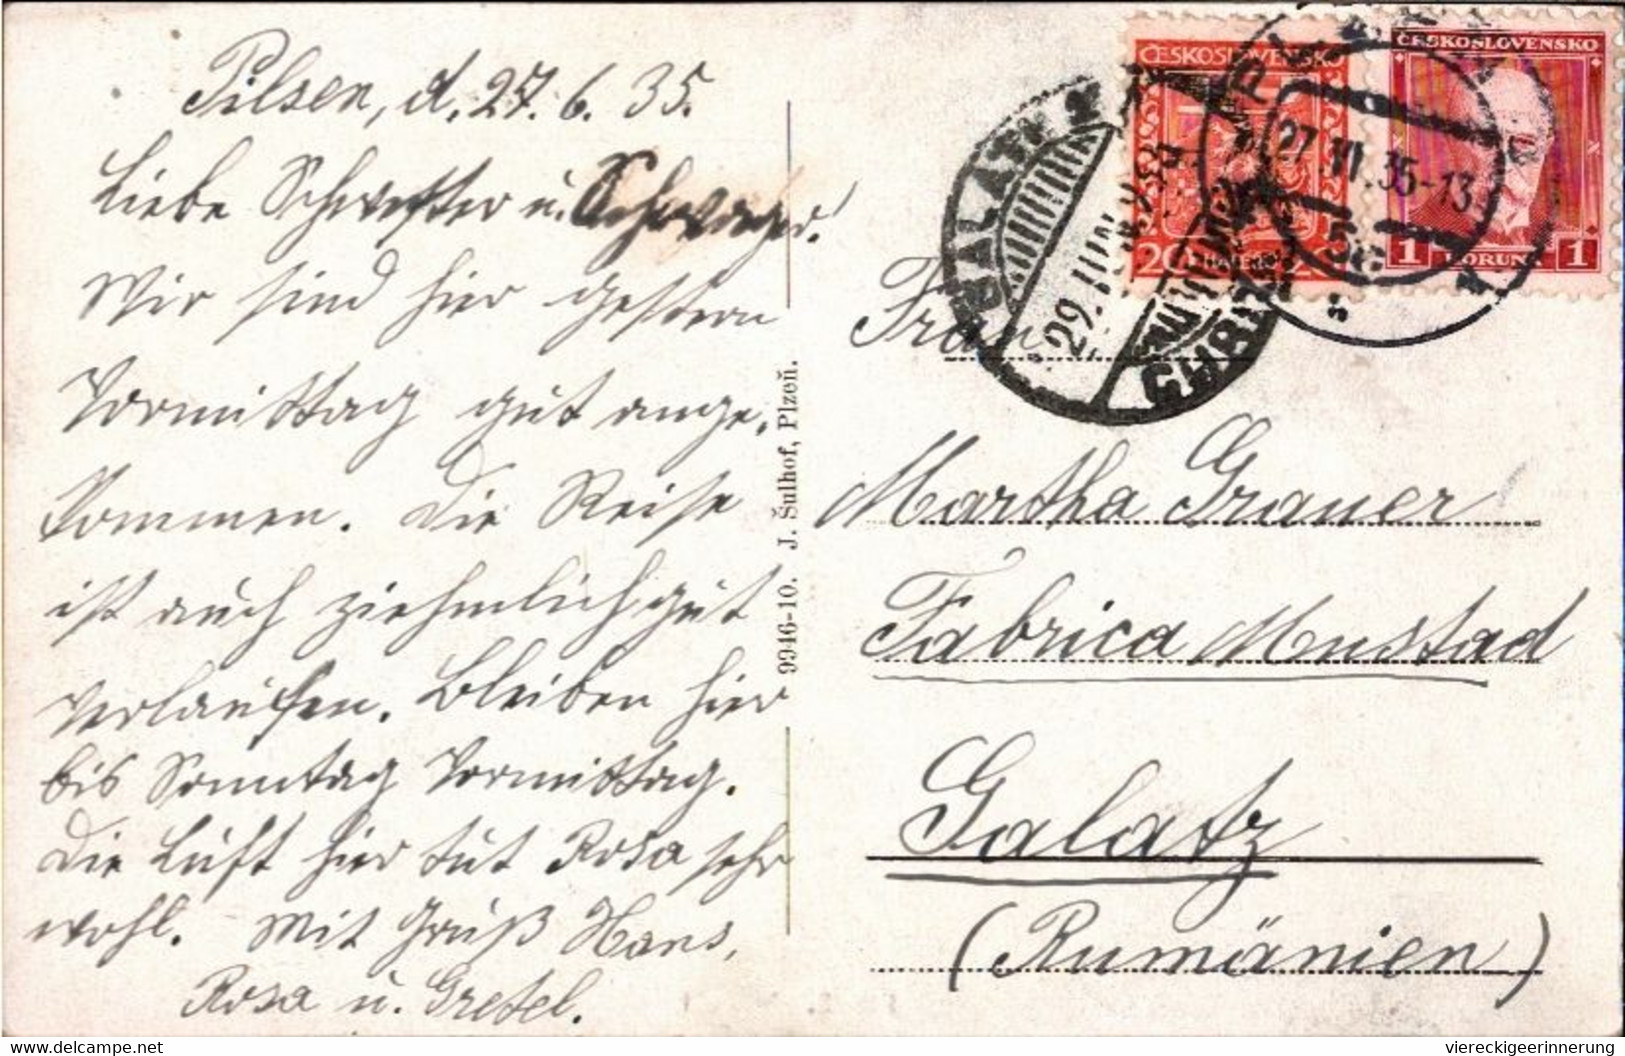 Pilsen, d. 27. 6. 35.
Liebe Schwester u. Schwager!
Wir sind hier gestern
Vormittag gut ange-
kommen. Die Reise
ist auch ziehmlich gut
verlaufen. Bleiben hier
bis Sonntag Vormittag.
Die Luft hier tut Rosa sehr
wohl. Mit Gruß Hans,
Rosa u. Gretel.
9946-10. J. Šulhof, Plzeň.
ČESKOSLOVENSKO
20
ČESKOSLOVENSKO
1 KORUNA 1
27.VI.35-13
GALATI
29. IUN. 935
Frau
Martha Grauer
Fabrica Mustad
Galatz
(Rumänien)
Delcampe.net
viereckigeerinnerung